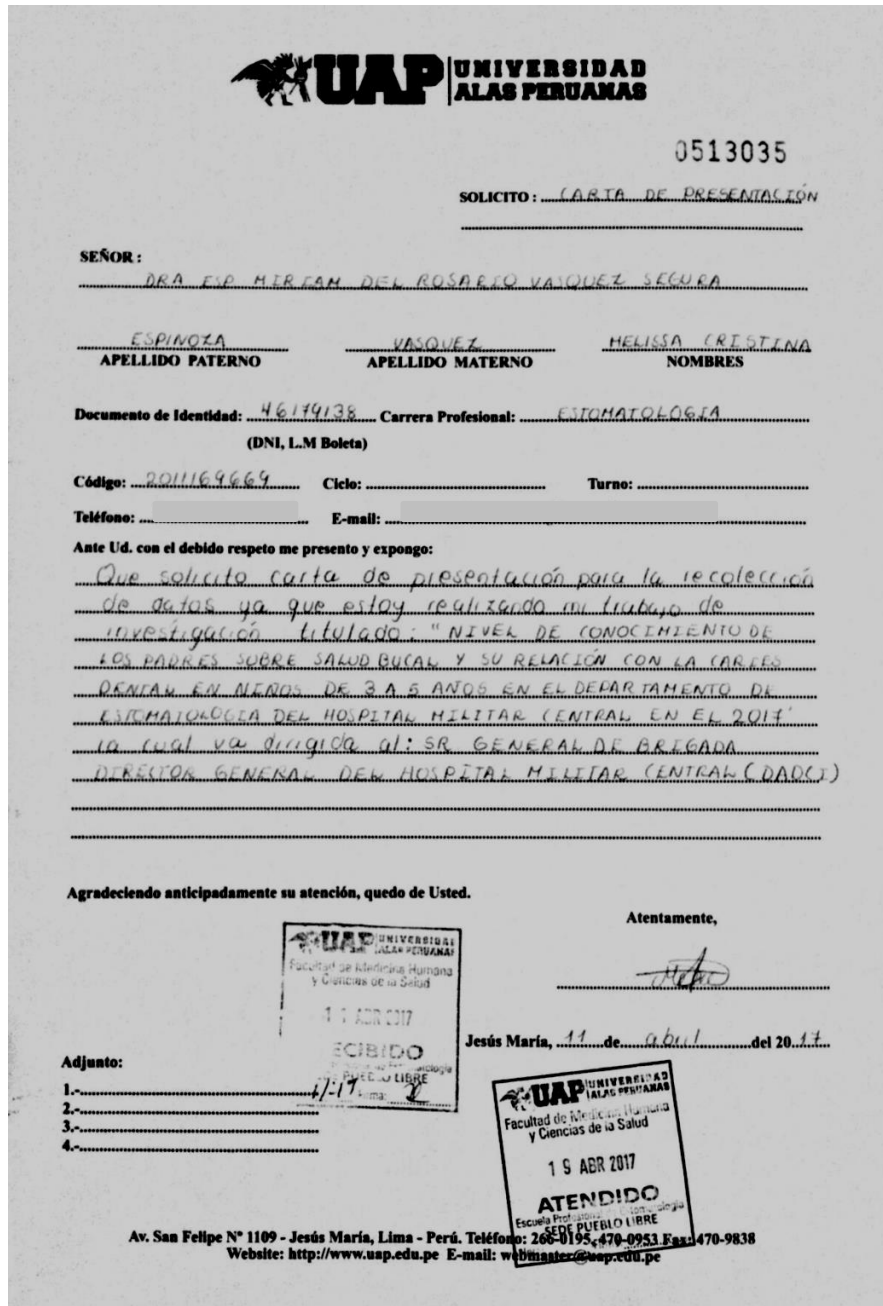 UAP UNIVERSIDAD
ALAS PERUANAS
0513035
SOLICITO : CARTA DE PRESENTACIÓN
SEÑOR :
DRA ESP MIRIAM DEL ROSARIO VASQUEZ SEGURA
ESPINOZA VASQUEZ MELISSA CRISTINA
APELLIDO PATERNO APELLIDO MATERNO NOMBRES
Documento de Identidad: 46174138 Carrera Profesional: ESTOMATOLOGIA
(DNI, L.M Boleta)
Código: 2011169669 Ciclo: Turno:
Teléfono: E-mail:
Ante Ud. con el debido respeto me presento y expongo:
Que solicito carta de presentación para la recolección
de datos ya que estoy realizando mi trabajo de
investigación titulado: "NIVEL DE CONOCIMIENTO DE
LOS PADRES SOBRE SALUD BUCAL Y SU RELACIÓN CON LA CARIES
DENTAL EN NIÑOS DE 3 A 5 AÑOS EN EL DEPARTAMENTO DE
ESTOMATOLOGIA DEL HOSPITAL MILITAR CENTRAL EN EL 2017"
la cual va dirigida al: SR GENERAL DE BRIGADA
DIRECTOR GENERAL DEL HOSPITAL MILITAR CENTRAL (DADCI)
Agradeciendo anticipadamente su atención, quedo de Usted.
Atentamente,
UAP UNIVERSIDAD
ALAS PERUANAS
Facultad de Medicina Humana
y Ciencias de la Salud
ABR 2017
ECIBIDO
PUEBLO LIBRE
Jesús María, 11 de abril del 2017
Adjunto:
1.-
2.-
3.-
4.-
UAP UNIVERSIDAD
ALAS PERUANAS
Facultad de Medicina Humana
y Ciencias de la Salud
19 ABR 2017
ATENDIDO
Escuela Profesional de Estomatología
SEDE PUEBLO LIBRE
Av. San Felipe Nº 1109 - Jesús María, Lima - Perú. Teléfono: 266-0195, 470-0953 Fax: 470-9838
Website: http://www.uap.edu.pe E-mail: webmaster@uap.edu.pe